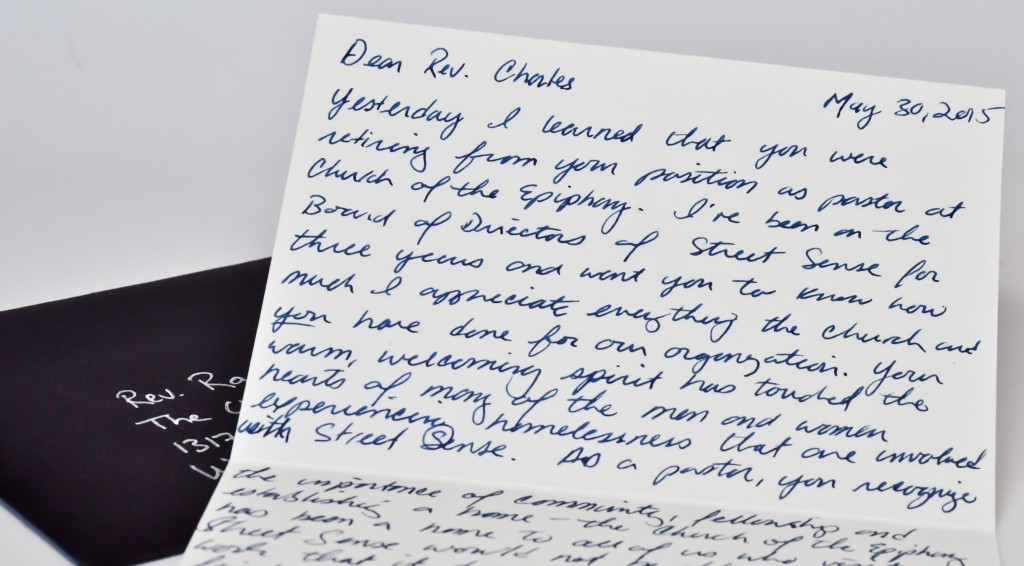 Dear Rev. Charles
May 30, 2015
Yesterday I learned that you were
retiring from your position as pastor at
Church of the Epiphany. I've been on the
Board of Directors of Street Sense for
three years and want you to know how
much I appreciate everything the church and
you have done for our organization. Your
warm, welcoming spirit has touched the
hearts of many of the men and women
experiencing homelessness that are involved
with Street Sense. As a pastor, you recognize
the importance of community, fellowship and
establishing a home - the Church of the Epiphany
has been a home to all of us who
Street Sense would not
work that it
Rev.
The
1317